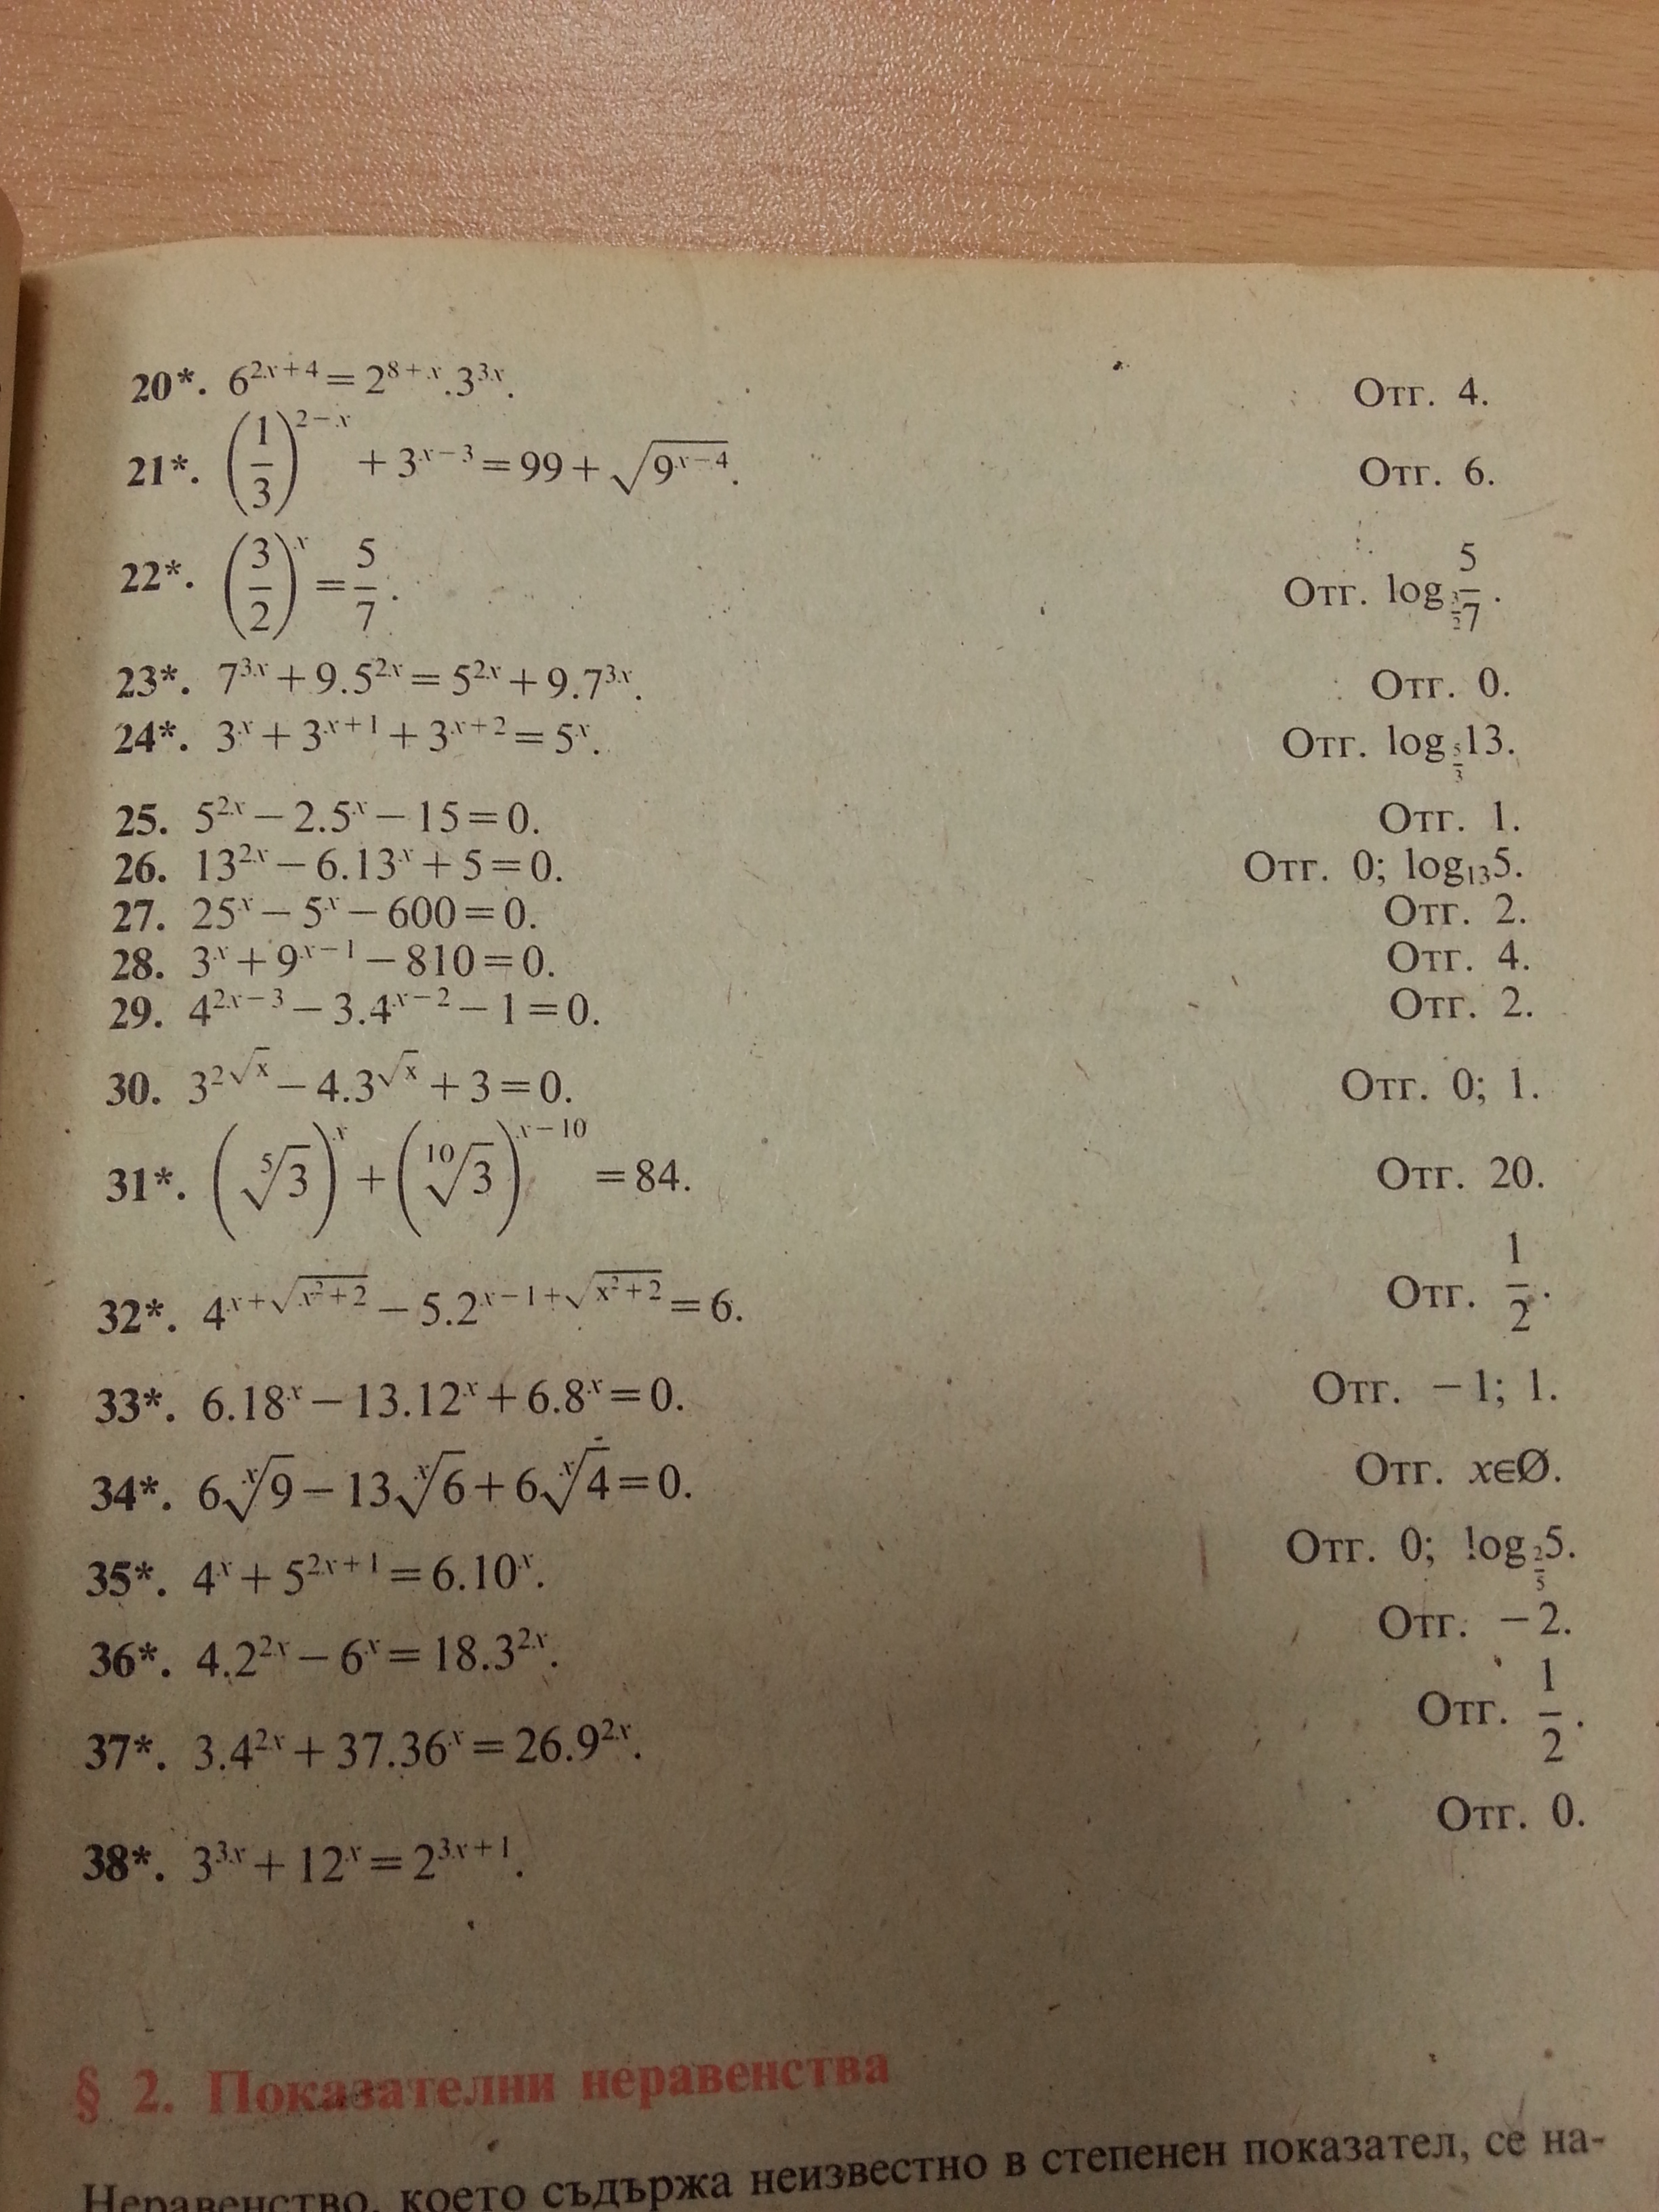 20*. 6^{2x+4}=2^{8+x}.3^{3x}. Отг. 4.
21*. (1/3)^{2-x}+3^{x-3}=99+√(9^{x-4}). Отг. 6.
22*. (3/2)^x=5/7. Отг. log_{3/2} 5/7.
23*. 7^{3x}+9.5^{2x}=5^{2x}+9.7^{3x}. Отг. 0.
24*. 3^x+3^{x+1}+3^{x+2}=5^x. Отг. log_{5/3}13.
25. 5^{2x}-2.5^x-15=0. Отг. 1.
26. 13^{2x}-6.13^x+5=0. Отг. 0; log_{13}5.
27. 25^x-5^x-600=0. Отг. 2.
28. 3^x+9^{x-1}-810=0. Отг. 4.
29. 4^{2x-3}-3.4^{x-2}-1=0. Отг. 2.
30. 3^{2√x}-4.3^{√x}+3=0. Отг. 0; 1.
31*. (⁵√3)^x+(¹⁰√3)^{x-10}=84. Отг. 20.
32*. 4^{x+√(x²+2)}-5.2^{x-1+√(x²+2)}=6. Отг. 1/2.
33*. 6.18^x-13.12^x+6.8^x=0. Отг. -1; 1.
34*. 6ˣ√9-13ˣ√6+6ˣ√4=0. Отг. x∈Ø.
35*. 4^x+5^{2x+1}=6.10^x. Отг. 0; log_{2/5}5.
36*. 4.2^{2x}-6^x=18.3^{2x}. Отг. -2.
37*. 3.4^{2x}+37.36^x=26.9^{2x}. Отг. 1/2.
38*. 3^{3x}+12^x=2^{3x+1}. Отг. 0.
§ 2. Показателни неравенства
Неравенство, което съдържа неизвестно в степенен показател, се на-